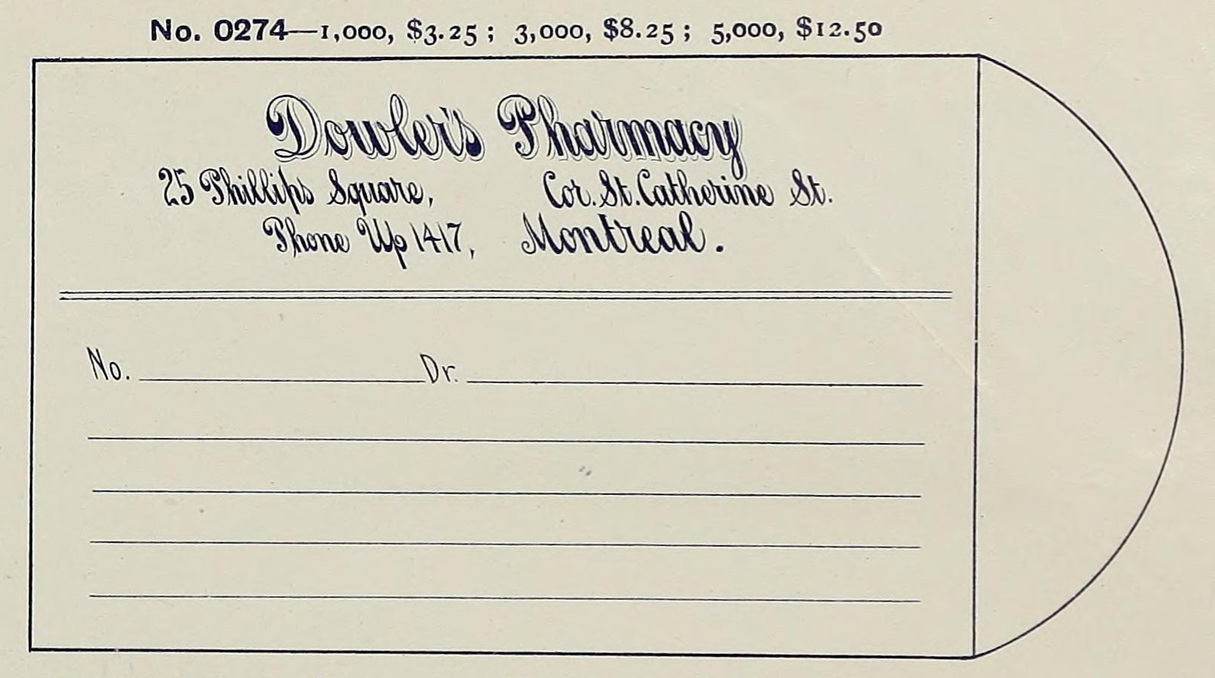 No. 0274—1,000, $3.25; 3,000, $8.25; 5,000, $12.50
Dowler's Pharmacy
25 Phillips Square, Cor. St. Catherine St.
Phone Up 1417, Montreal.
No. Dr.